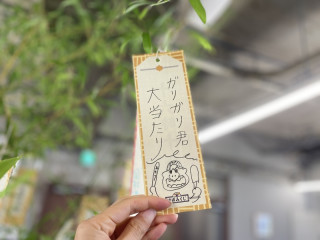 ガリガリ君
大当たり